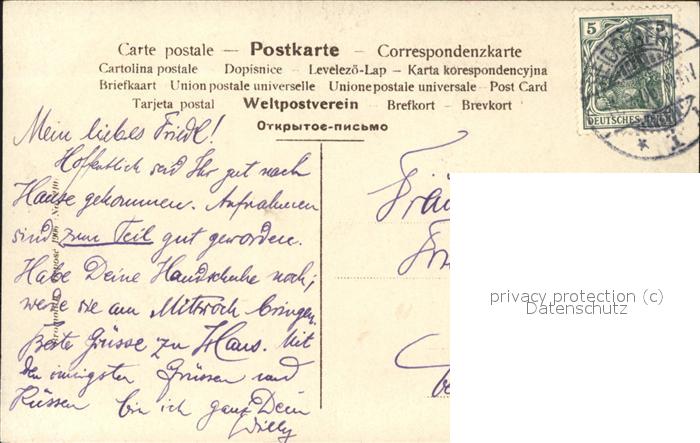 Carte postale — Postkarte — Correspondenzkarte
Cartolina postale – Dopisnice – Levelező-Lap – Karta korespondencyjna
Briefkaart Union postale universelle Unione postale universale – Post Card
Tarjeta postal Weltpostverein – Brefkort – Brevkort
Открытое-письмо
5
DEUTSCHES REICH
Mein liebes Friedl!
Hoffentlich seid Ihr gut nach
Hause gekommen. Aufnahmen
sind zum Teil gut geworden.
Habe Deine Handschuhe noch;
werde sie am Mittwoch bringen.
Beste Grüsse zu Haus. Mit
den innigsten Grüssen und
Küssen bin ich ganz Dein
Willy
privacy protection (c)
Datenschutz